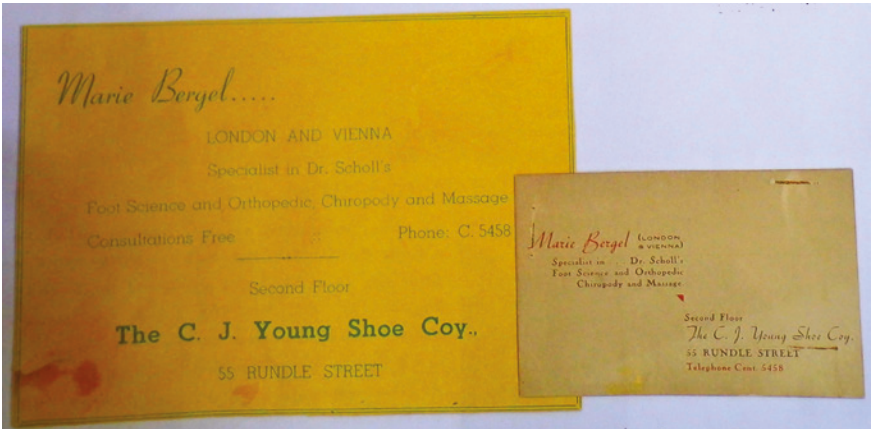 Marie Bergel.....
LONDON AND VIENNA
Specialist in Dr. Scholl's
Foot Science and Orthopedic, Chiropody and Massage
Consultations Free Phone: C. 5458
Second Floor
The C. J. Young Shoe Coy.,
55 RUNDLE STREET
Marie Bergel (LONDON
& VIENNA)
Specialist in . . Dr. Scholl's
Foot Science and Orthopedic
Chiropody and Massage
Second Floor
The C. J. Young Shoe Coy.
55 RUNDLE STREET
Telephone Cent. 5458